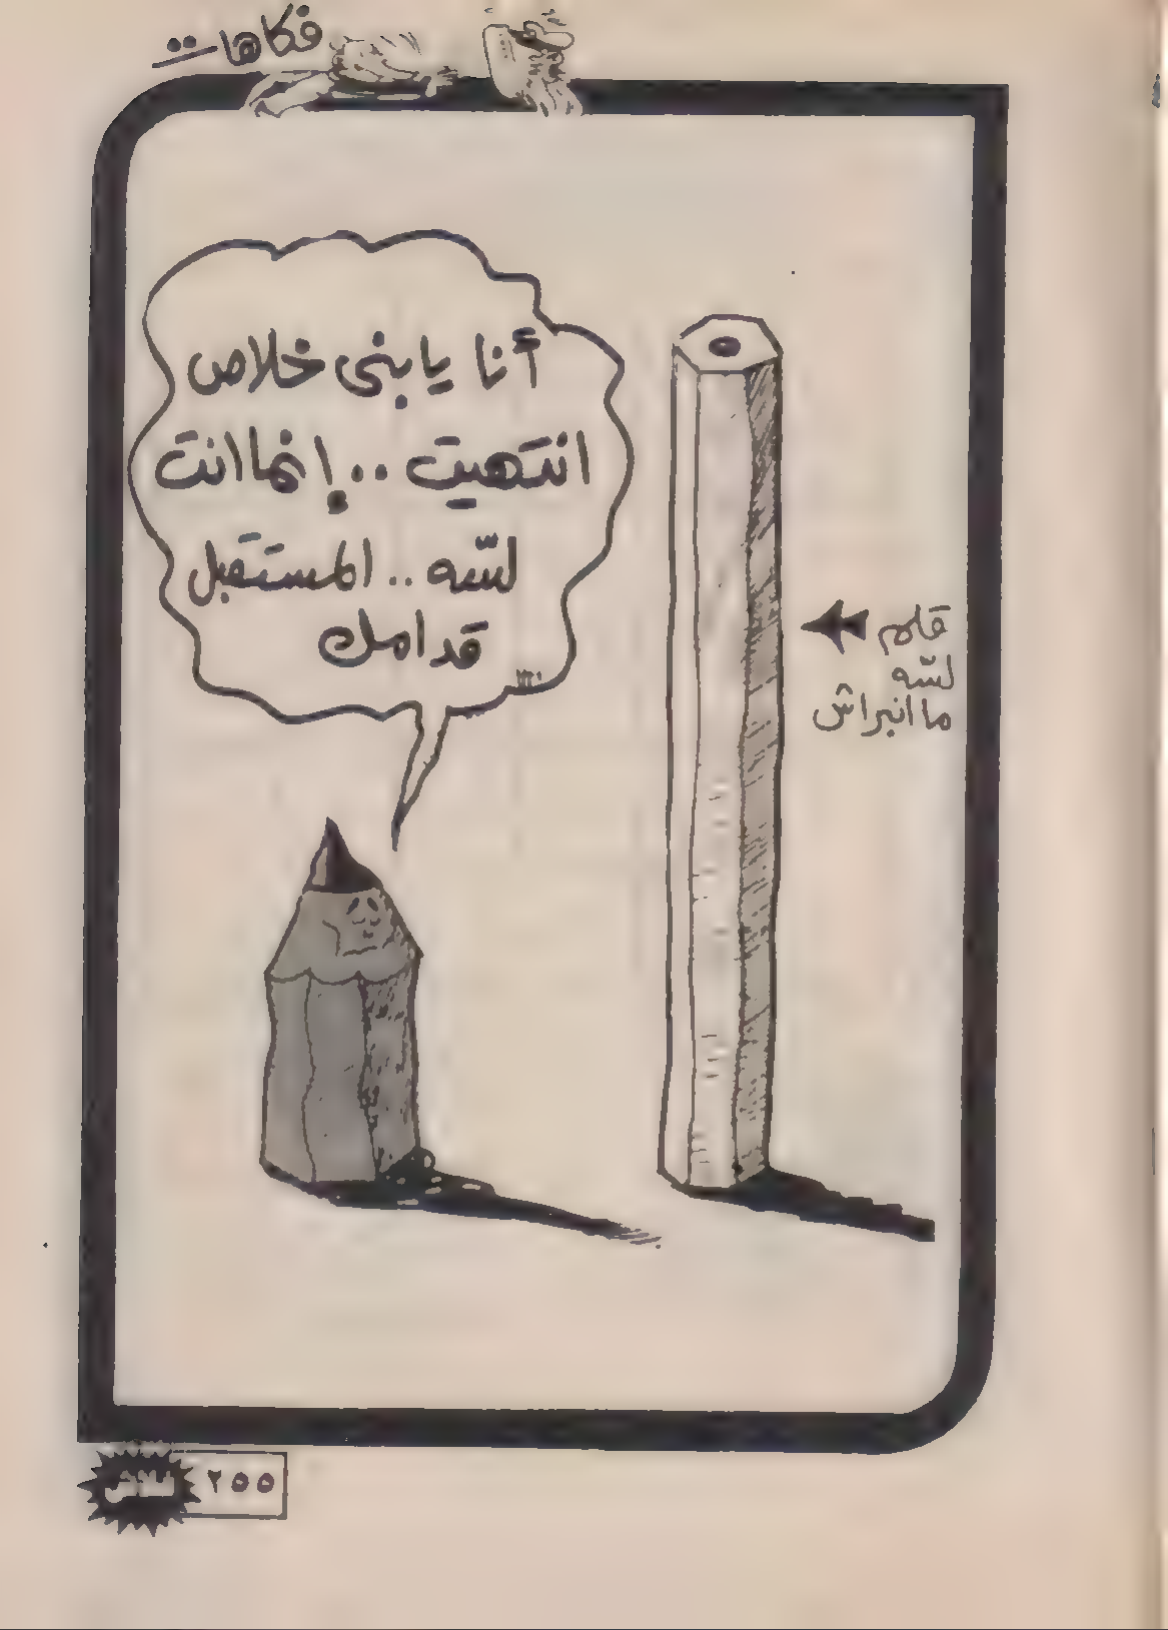 فكاهات
أنا يا بنى خلاص
انتهيت .. إنما انت
لسّه .. المستقبل
قدامك
قلم
لسّه
ما انبراش
فلاش ٢٥٥